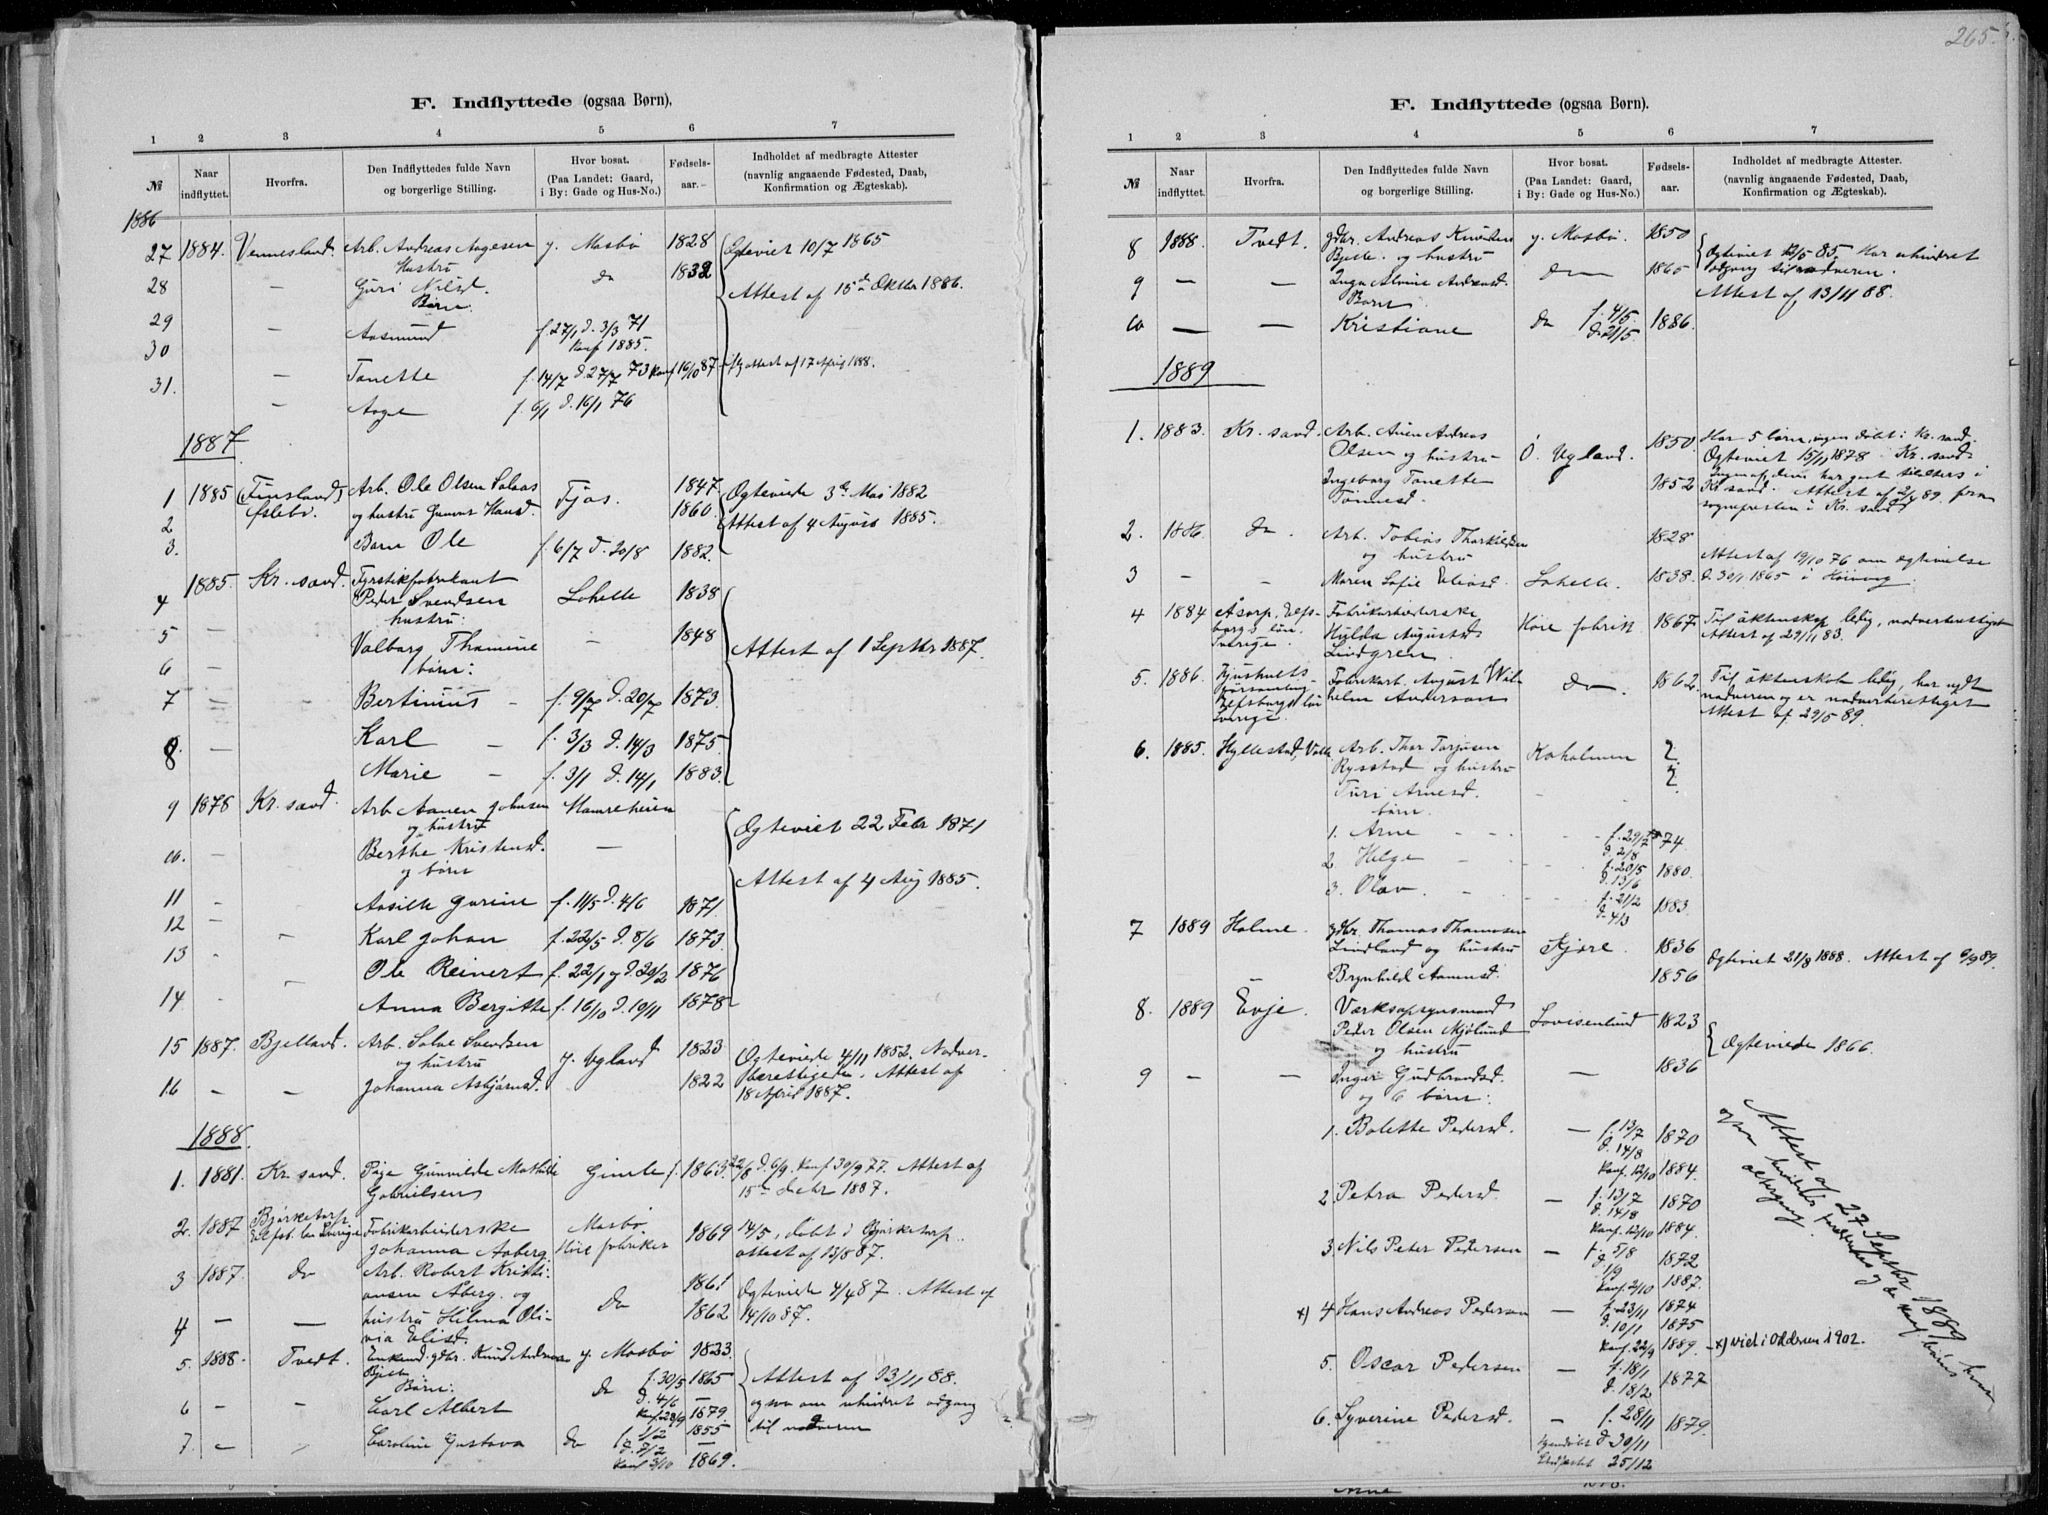 F. Indflyttede (ogsaa Børn).
1 2 3 4 5 6 7
№
Naar indflyttet.
Hvorfra.
Den Indflyttedes fulde Navn og borgerlige Stilling.
Hvor bosat. (Paa Landet: Gaard, i By: Gade og Hus-No.)
Fødsels-aar.
Indholdet af medbragte Attester (navnlig angaaende Fødested, Daab, Konfirmation og Ægteskab).
1886
27 1884. Vennesland. Arb. Andreas Aagesen y. Mosbø 1828 Ægteviet 10/7 1865
Hustru
28 — Guri Nilsd. do 1832 Attest af 15de Oktbr 1886.
Børn:
29 — Aasmund f. 27/1 d. 3/3 71
Konf 1885.
30 — Tonette f. 14/7 d. 27/7 73 Konf 16/10 87 attest af 17 April 1888.
31. — Aagе f. 6/1 d. 16/1 76
1887
1 1885 (Finsland) Arb. Ole Olsen Fjos. 1847 Ægteviede 3de Mai 1882
2 og hustru Gunvor Hansd. 1860 Attest af 4 August 1885.
3. Barn Ole f. 6/7 d. 20/8 1882.
1885. Kr. sand. Fyrstikfabrikant
4 Peder Svendsen Lohelle 1838
hustru:
5 — Valborg Thomine — 1848 Attest af 1 Septbr 1887.
6 — børn:
7 — Bertinius f. 9/7 d. 20/7 1873.
8. — Karl — f. 3/3 d. 14/3 1875.
Marie — f. 3/1 d. 14/1 1883.
9 1878 Kr. sand. Arb Aanen Johnsen Hamreheien Ægteviet 22 Febr 1871
og hustru
10. — Berthe Kristensd. —
og børn Attest af 4 Aug 1885.
11 - Aasille Gurine f. 11/5 d. 4/6 1871.
12 - Karl Johan f. 22/5 d. 8/6 1873.
13 Ole Reinert f. 22/1 og d. 20/2 1876
14 Anna Bergitte f. 16/10 d. 10/11 1878
15 1887. Bjelland. Arb. Salve Svendsen y. Ugland 1823 Ægteviede 4/11 1852. Nadver-
og hustru berettigede. Attest af
16 — — Johanna Asbjørnsd. 1822 18 April 1887.
1888.
1. 1881. Kr. sand. Pige Gunvilde Mathilde Gimle f. 1863 22/8 d. 6/9. Konf 30/9 77. Attest af
Gabrielsen 15de Decbr 1887.
2. 1887 Bjørketorp Fabrikarbeiderske Mosbø 1869 14/5, døbt i Bjørketorp.
Elfsb. len Sverige Johanna Aaberg Høie fabriker attest af 13/8 87.
3 1887. do Arb. Robert Kristi- 1861 Ægteviede 4/4 87. Attest af
ansen Aberg. og do
4 — — hustru Hilma Oli- 1862 14/10 87.
via Elisd.
5. 1888. Tvedt. Enkemd. gdbr. Knud Andreas y. Mosbø 1833
Bjelle
Børn: do f. 30/5 1865 Attest af 13/11 88.
6 - — Carl Albert d. 4/6 — og om uhindret adgang
Konf 28/9 1879. til nadveren
7. - Caroline Gustava do f. 1/2 1855
d. 2/2 —
Konf 3/10 1869.
265.
F. Indflyttede (ogsaa Børn).
1 2 3 4 5 6 7
№
Naar indflyttet.
Hvorfra.
Den Indflyttedes fulde Navn og borgerlige Stilling.
Hvor bosat. (Paa Landet: Gaard, i By: Gade og Hus-No.)
Fødsels-aar.
Indholdet af medbragte Attester (navnlig angaaende Fødested, Daab, Konfirmation og Ægteskab).
8 1888. Tvedt. gdbr. Andreas Knudsen y. Mosbø. 1850 Ægteviet 12/5 85. Har uhindret
Bjelle. og hustru adgang til nadveren.
9 — — Inga Alvine Andreasd. do 1865 Attest af 13/11 88.
Barn
10 — — Kristiane do f. 4/5. d. 21/5 1886.
1889
1. 1883. Kr. sand. Arb. Anen Andreas 1850 Har 5 børn, ingen døbt i Kr. sand.
Olsen og hustru Ø. Ugland. Ægteviet 15/11 1878 i Kr. sand
Ingeborg Tonette 1852 Ingen af dem har gaat tilalters i
Tønnesd. Kr sand. Attest af 2/4 89. fra
sognepresten i Kr. sand
2. 1886. do. Arb. Tobias Tharkildsen 1828
og hustru Attest af 19/10 76 om ægtevielse
3 - - Maren Sofie Eliasd. Lohelle. 1838. d. 30/1 1865 i
4 1884 Elfs- Fabrikarbeiderske
borgs län. Hulda Augustad. Høie fabrik 1867. Til äktenskap ledig, nadverberettiget
Sverige. Lindgren. Attest af 29/11 83.
5. 1886. Fabrikarb. August Wil- do. 1862. Til äktenskab ledig, har nydt
församling helm Anderson nadveren og er nadverberettiget
Elfsborgs län Attest af 29/5 89.
Sverige.
6. 1885. Hyllestad, Valle Arb. Thor Torjusen Koholmen ?
Rysstad og hustru ?
Turi Arnesd.
børn.
1. Arne f. 29/7 74
d. 2/8
2 Helge f. 20/5 1880.
d. 13/6
3. Olav f. 21/2 1883
d. 4/3
7 1889 Holme. gdbr. Thomas Thomasen 1836
Lindland og hustru Kjøre. Ægteviet 21/8 1888. Attest af 6/9 89.
Brynhild Aanensd. 1856
8. 1889 Evje. Værksopsynsmand
Peder Olsen Mjølund Lovisenlund 1823 Ægteviede 1866.
og hustru
9 — — Inger Gudbrandsd. — 1836
og 6 børn:
1. Bolette Pedersd. — f. 13/7 1870
d. 14/8
Konf. 12/10 1884.
2 Petra Pedersd. — f. 13/7 1870
d. 14/8
Konf. 12/10 1884.
3. Nils Peter Pedersen — f. 5/8 1872
d. 1/9
Konf 2/10 1887.
x) 4 Hans Andreas Pedersen — f. 23/11 1874
d. 10/1 1875
Konf. 22/9 1889. x) viet i Oddersn i 902.
5. Oscar Pedersen — f. 18/1 1877
d. 18/2
6. Syverine Pedersd. — f. 28/11 1879.
hjemdøbt d 30/11
Stadfæstet 25/12
Attest af 27 Septbr 1889